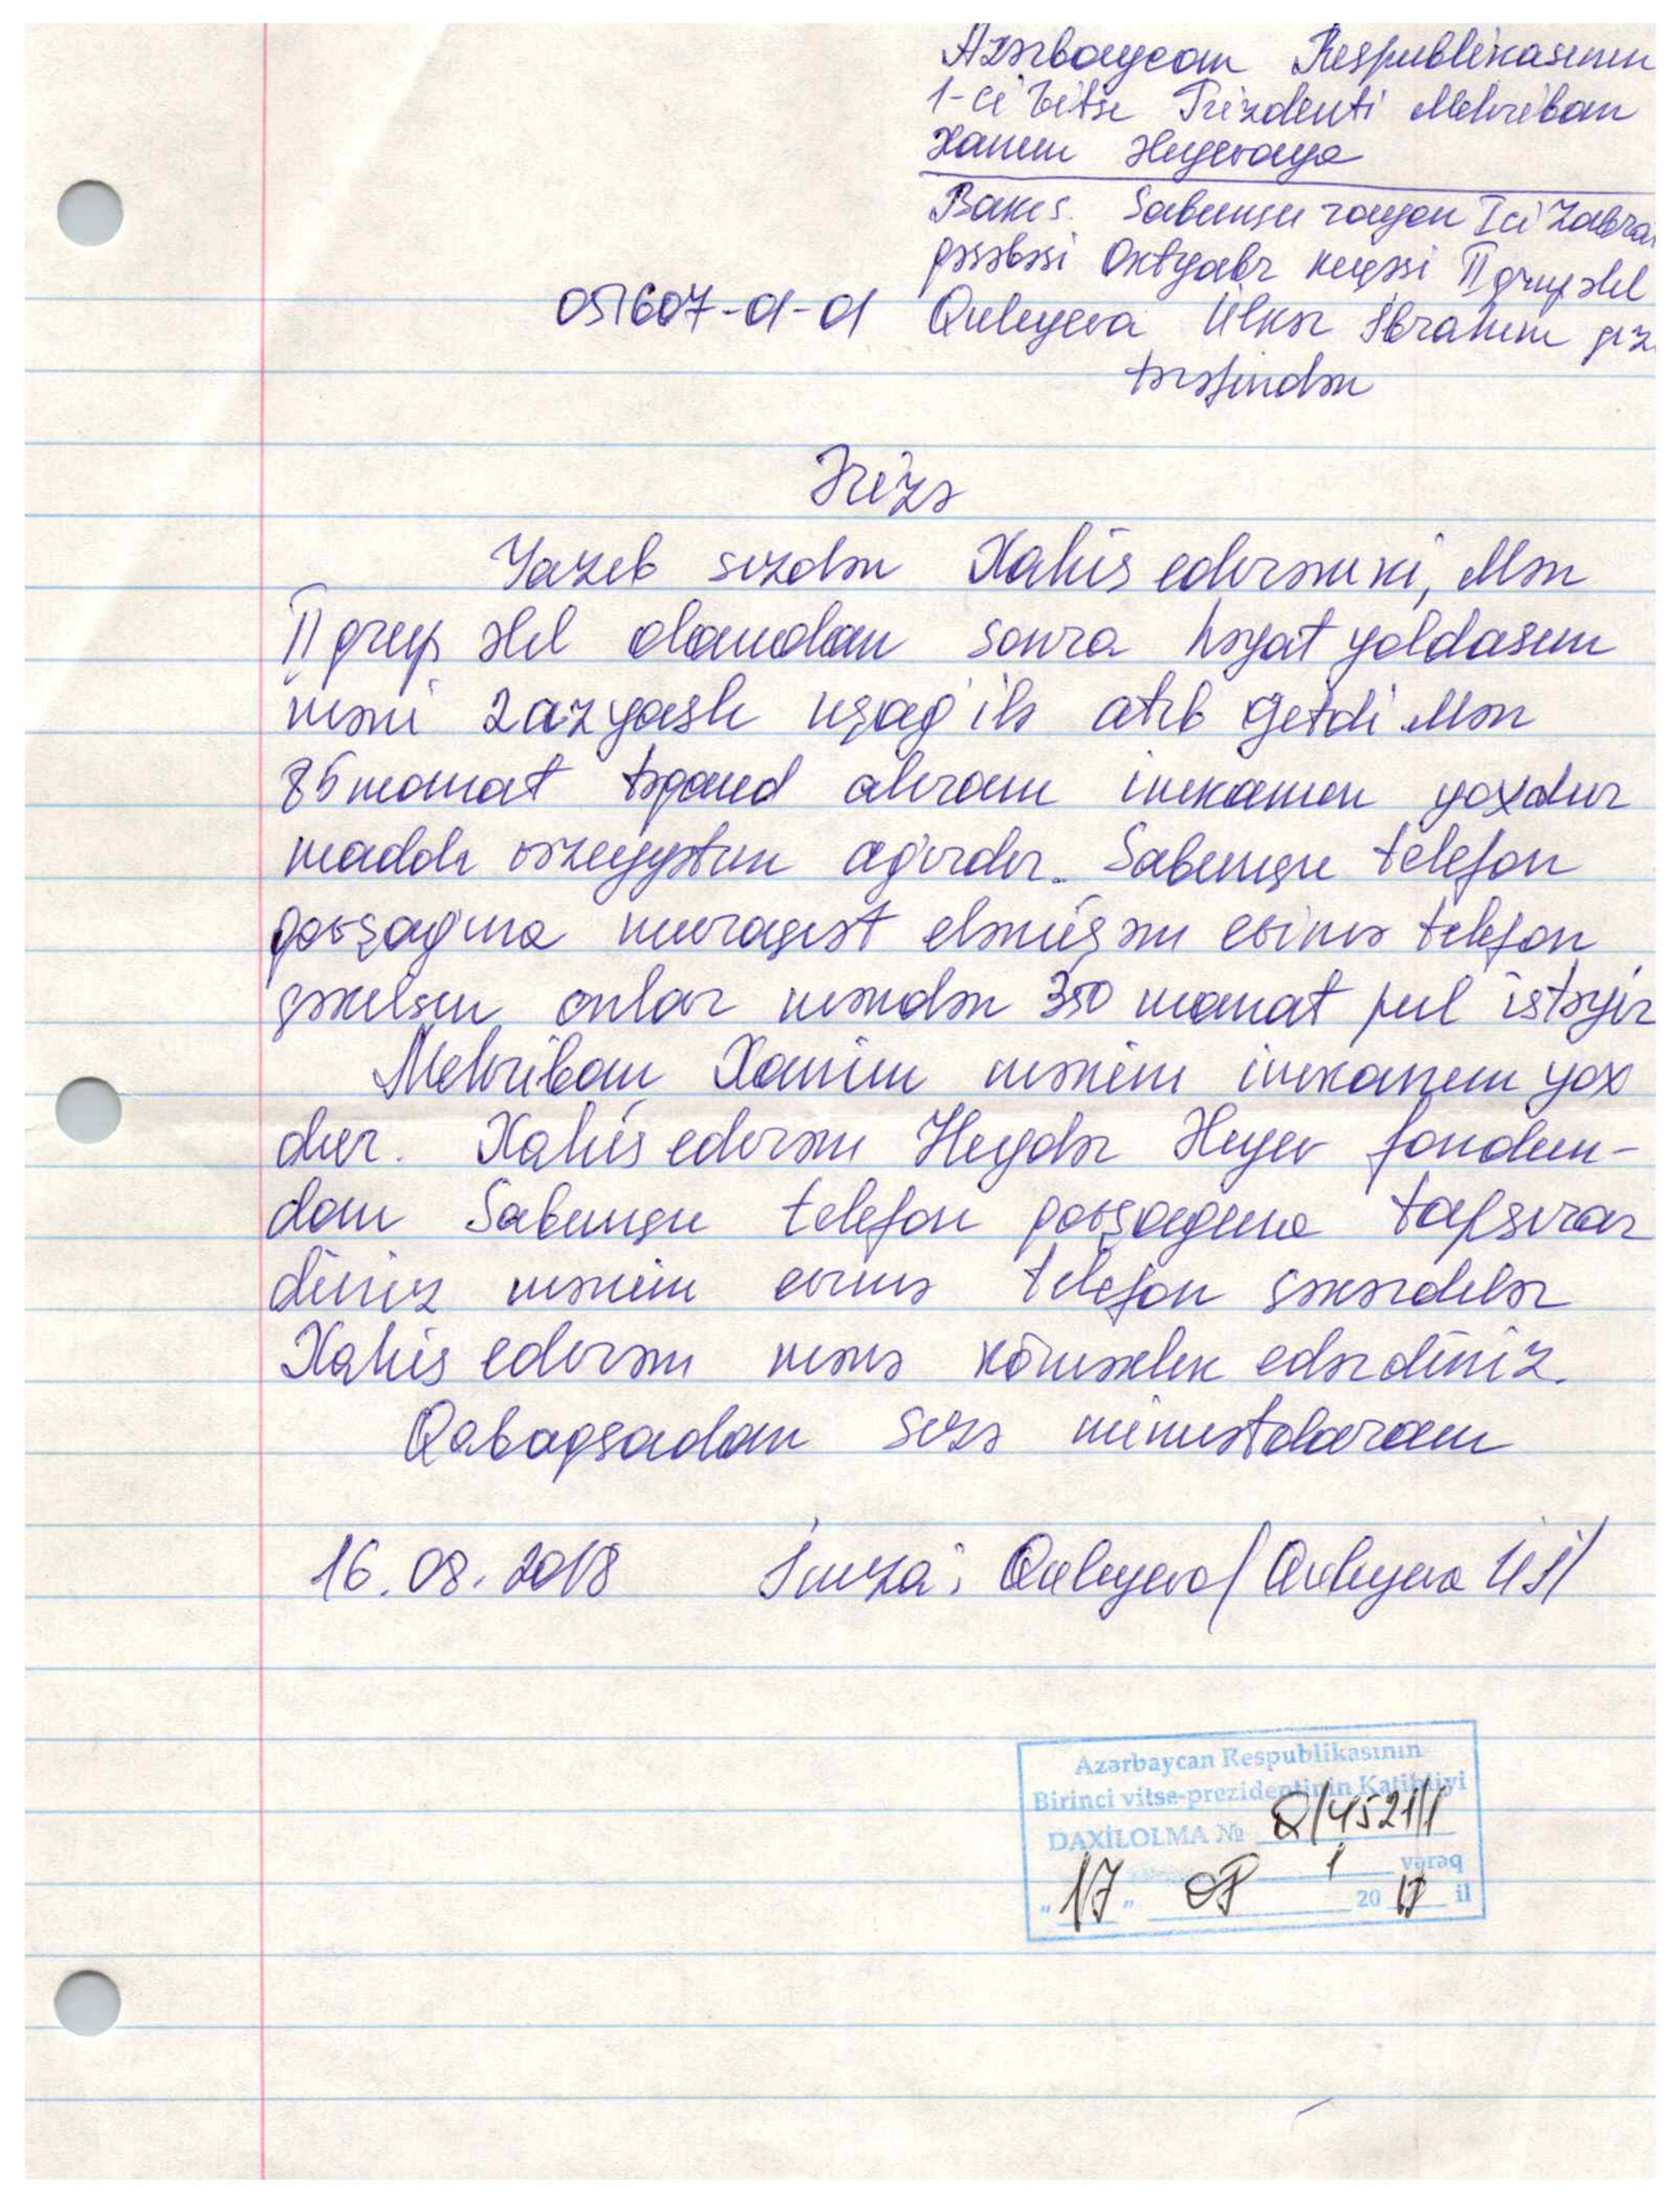 Azərbaycan Respublikasının
1-ci Vitse Prizdenti Mehriban
Xanım Əliyevaya
Bakı ş. Sabunçu rayon I ci Zabra
qəsəbəsi Oktyabr küçəsi II qrup əlil
051607-01-01 Quliyeva Ülkər İbrahim qız
tərəfindən
Ərizə
Yazıb sizdən Xahiş edirəm ki, Mən
II qrup əlil olandan sonra həyat yoldaşım
məni 2 azyaşlı uşağ ilə atıb getdi Mən
86 manat təqaüd alıram imkanım yoxdur
maddi vəziyyətim ağırdır. Sabunçu telefon
qovşağına müraciət etmişəm evimə telefon
çəkilsin onlar məndən 350 manat pul istəyir
Mehriban Xanım mənim imkanım yox
dur. Xahiş edirəm Heydər Əliyev fondun-
dan Sabunçu telefon qovşağına tapşırar
dınız mənim evimə telefon çəkərdilər
Xahiş edirəm mənə köməklik edərdiniz.
Qabaqcadan sizə minnətdaram
16.08.2018 İmza: Quliyeva / Quliyeva Ü İ/
Azərbaycan Respublikasının
Birinci vitse-prezidentinin Katibliyi
DAXİLOLMA № Q/4521/1
1 vərəq
"17" 08 2018 il